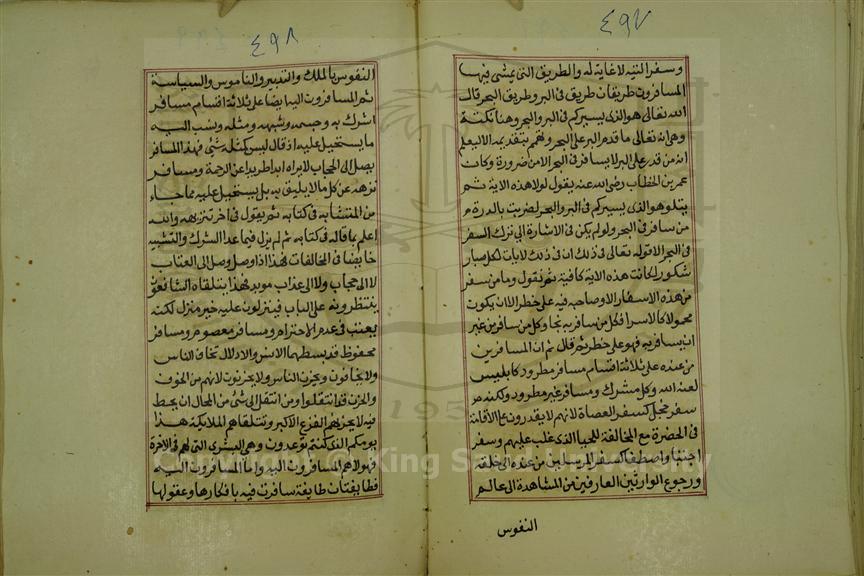 ٤٩٧
وسفر التيه لا غاية له والطريق التى يمشى فيها
المسافرون طريقان طريق فى البر وطريق البحر قال
الله تعالى هو الذى يسيركم فى البر والبحر وهنا نكتة
وهى انه تعالى ما قدم البر على البحر وهمم بتقديمه الا ليعلم
انه من قدر على البر لا يسافر فى البحر الا من ضرورة وكان
عمر بن الخطاب رضى الله عنه يقول لولا هذه الاية ثم
يتلو هو الذى يسيركم فى البر والبحر لضربت بالدرة
من سافر فى البحر ولو لم يكن فى الاشارة الى ترك السفر
فى البحر الا قوله تعالى فى ذلك ان فى ذلك لايات لكل صبار
شكور لكانت هذه الاية كافية ثم نقول وما من سفر
من هذه الاسفار الا وصاحبه فيه على خطر الا ان يكون
محمولا كالاسرا فكل من سافر به نجا وكل من سافر من غير
ان يسافر به فهو على خطر ثم قال ثم ان المسافرين
من عنده على ثلاثة اقسام مسافر مطرود كابليس
لعنه الله وكل مشرك ومسافر غير مطرود ولكنه
سفر خجل كسفر العصاة لانهم لا يقدرون على الاقامة
فى الحضرة مع المخالفة للحيا الذى غلب عليهم وسفر
اجتبا واصطفا كسفر المرسلين من عنده الى خلقه
ورجوع الوارثين العارفين من المشاهدة الى عالم
النفوس
٤٩٨
النفوس بالملك والتدبير والناموس والسياسة
ثم المسافرون اليه ايضا على ثلاثة اقسام مسافر
اشرك به وجسمه وشبهه ومثله ونسب اليه
ما يستحيل عليه اذ قال ليس كمثله شئ فهذا المسافر
يصل الى الحجاب لا يراه ابدا طريدا عن الرحمة ومسافر
نزهه عن كل ما لا يليق به بل يستحيل عليه مما جاء
من المتشابه فى كتابه ثم يقول فى اخر تنزيهه والله
اعلم بما قاله فى كتابه ثم لم يزل فيما عدا الشرك والتشبيه
خايضا فى المخالفات فهذا اذا وصل وصل الى العتاب
لا الى حجاب ولا الى عذاب موبد فهذا يتلقاه الشافعون
ينتظرونه على الباب فينزلون عليه خير منزل لكنه
يعتب فى عدم الاحترام ومسافر معصوم ومسافر
محفوظ قد بسطهما الانس والادلال تخاف الناس
ولا يخافون ويحزن الناس ولا يحزنون لانهم من الخوف
والحزن قد انتقلوا ومن انتقل الى شئ من المحال ان يحط
فيه لا يحزنهم الفزع الاكبر وتتلقاهم الملايكة هذا
يومكم الذى كنتم توعدون وهى البشرى التى لهم فى الاخرة
فهولاء هم المسافرون اليه واما المسافرون اليه
فطايفتان طايفة سافرت فيه بافكارها وعقولها
Copyright © King Saud University
195